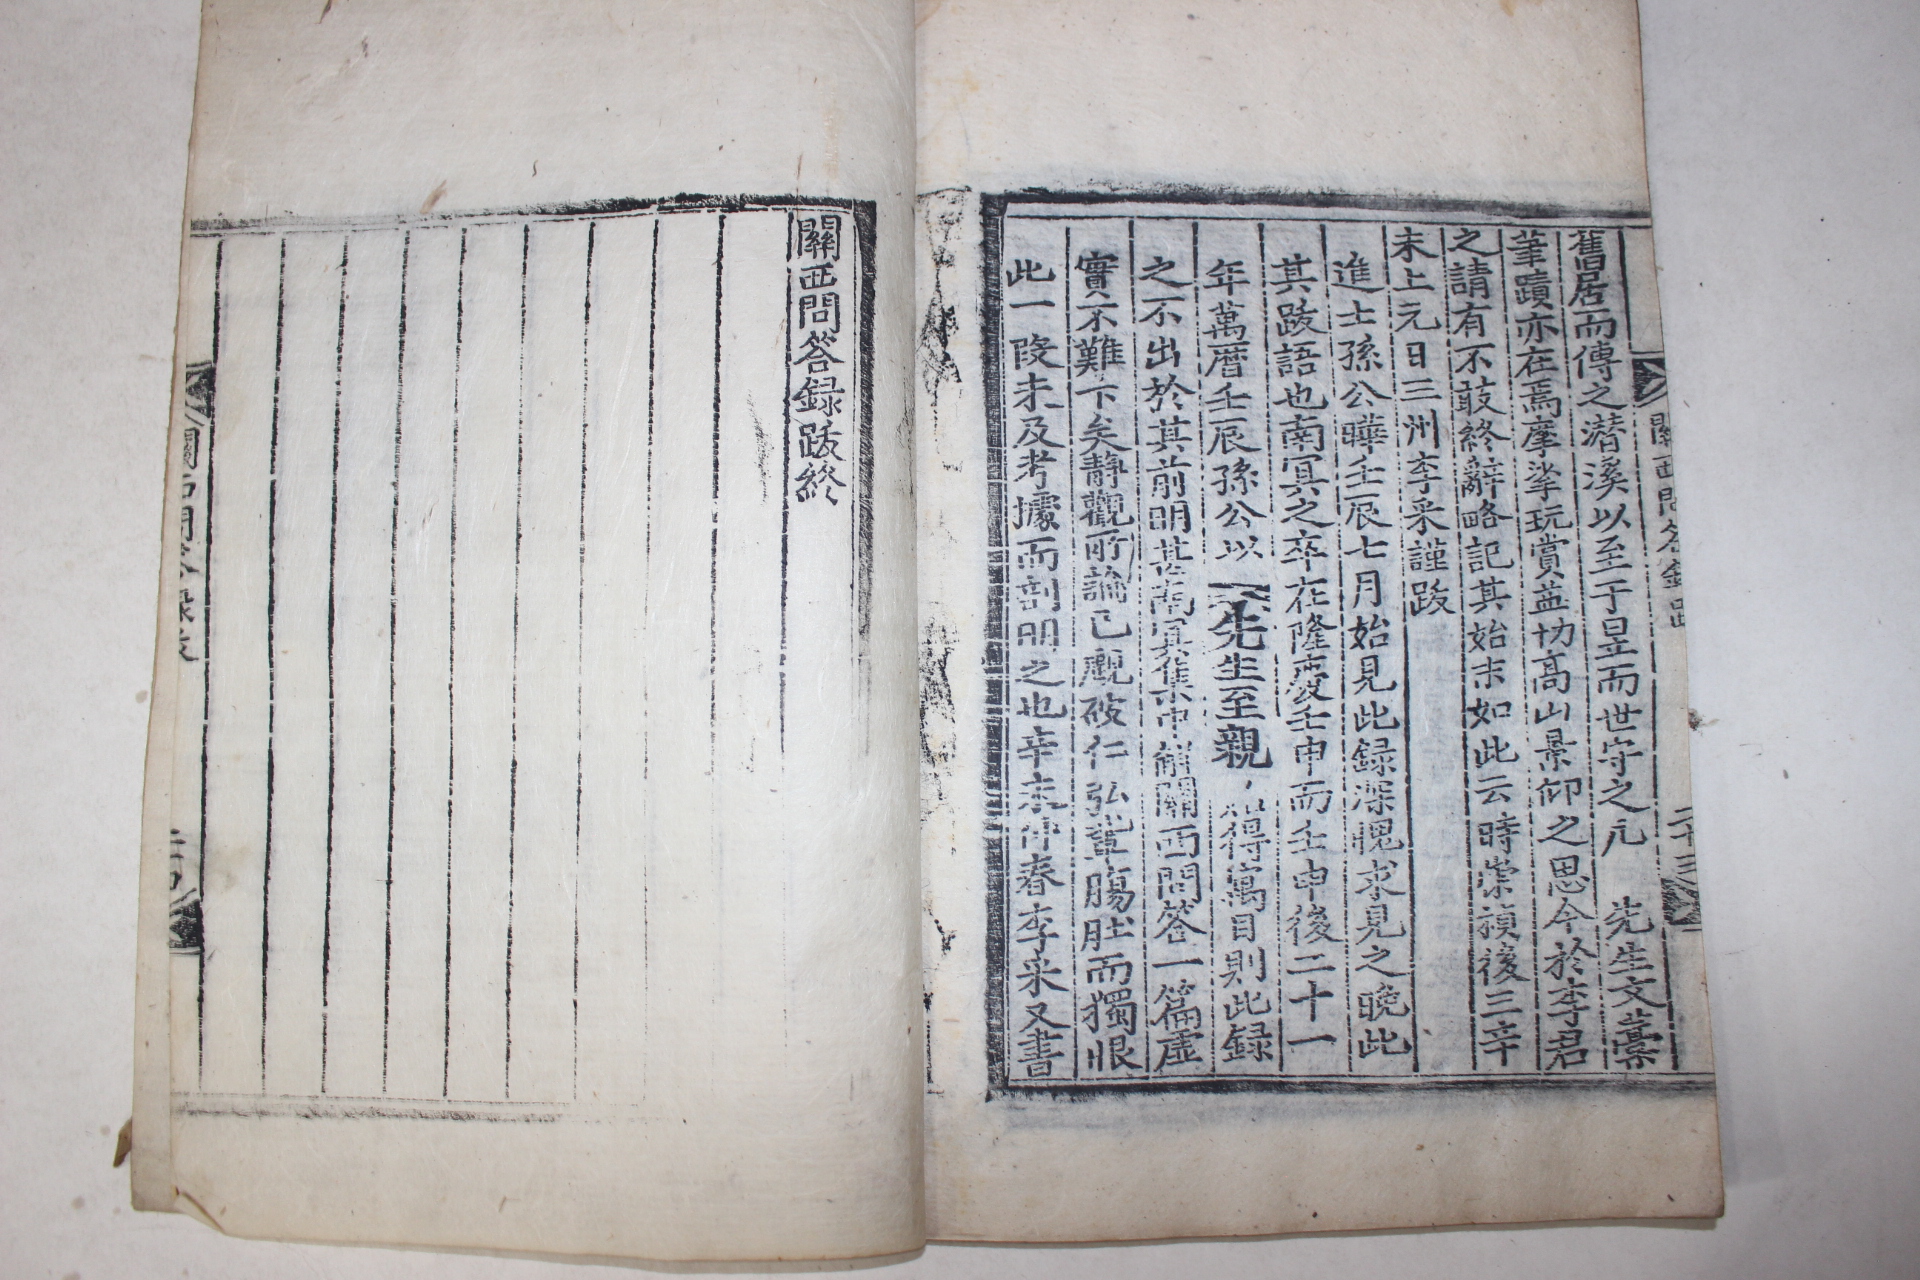 舊居而傳之潜溪以至于昰而世守之凢 先生文藁
筆蹟亦在焉摩挲玩賞益切高山景仰之思今於李君
之請有不敢終辭略記其始末如此云時崇禎後三辛
未上元日三州李采謹跋
進士孫公曄壬辰七月始見此録深愧求見之晩此
其跋語也南冥之卒在隆慶壬申而壬申後二十一
年萬曆壬辰孫公以先生至親 得寓目則此録
之不出於其前明甚南冥集中解關西問答一篇虛
實不難下矣静觀所論已覷破仁弘軰膓肚而獨恨
此一段未及考據而剖明之也辛未仲春李采又書
關西問答録跋
二十三
關西問答録跋終